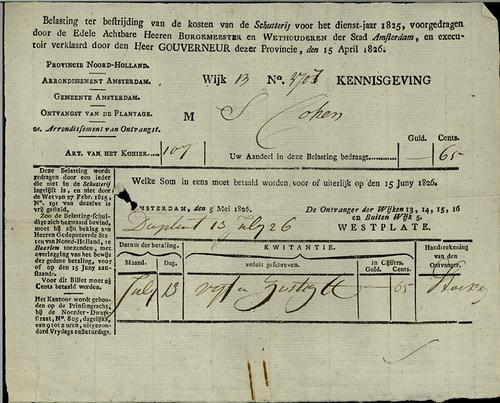 Belasting ter bestrijding van de kosten van de Schutterij voor het dienst-jaar 1825, voorgedragen
door de Edele Achtbare Heeren BURGEMEESTER en WETHOUDEREN der Stad Amsterdam, en execu-
toir verklaard door den Heer GOUVERNEUR dezer Provincie, den 15 April 1826.
PROVINCIE NOORD-HOLLAND.
ARRONDISSEMENT AMSTERDAM.
GEMEENTE AMSTERDAM.
ONTVANGST VAN DE PLANTAGE.
Arrondissement van Ontvangst.
WIJK 13 No. KENNISGEVING
M S Cohen
Guld. Cents.
ART. VAN HET KOHIER 107 Uw Aandeel in deze Belasting bedraagt — 65
Deze Belasting wordt
gedragen door een ieder
die niet in de Schutterij
ingelijfd is, en niet door
de Wet van 27 Febr. 1815,
No. 191 van dezelve is
vrij gesteld.
Zoo de Belasting-schul-
dige zich bezwaard bevind,
moet hij zijn beklag aan
Heeren Gedeputeerde Sta-
ten van Noord-Holland, te
Haarlem toezenden, met
overlegging van het bewijs
der gedane betaling, voor
of op den 15 Juny aan-
staande.
Voor dit Billet moet
Cents betaald worden.
Het Kantoor wordt gehou-
den op de Prinsengracht,
bij de Noorder-Dwars-
straat, No. 805, dagelijks,
van 9 tot 2 uren, uitgezon-
derd Vrydags en Saturdags.
Welke Som in eens moet betaald worden, voor of uiterlijk op den 15 Juny 1826.
AMSTERDAM, den 5 Mei 1826.
De Ontvanger der Wijken 13, 14, 15, 16
en Buiten Wijk 5.
WESTPLATE.
13 July 26
Datum der betaling. KWITANTIE. Handteekening
van den
Ontvanger.
Maand. Dag. voluit geschreven. in Cijffers.
Guld. Cents.
July 13 — 65